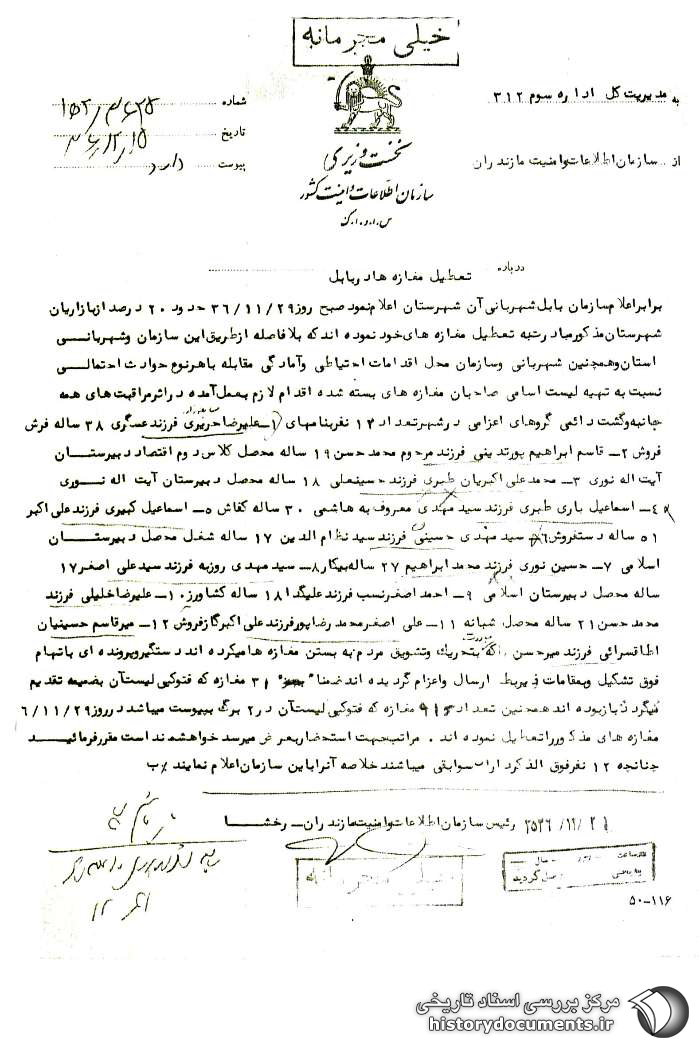 خیلی محرمانه
به مدیریت کل اداره سوم ۳۱۲
از سازمان اطلاعات و امنیت مازندران
شماره
تاریخ
پیوست دارد
نخست وزیری
سازمان اطلاعات و امنیت کشور
س.ا.و.ا.ک
درباره تعطیل مغازه ها در بابل
برابر اعلام سازمان بابل شهربانی آن شهرستان اعلام نمود صبح روز ۳۶/۱۱/۲۹ حدود ۲۰ درصد از بازاریان
شهرستان مذکور مبادرت به تعطیل مغازه های خود نموده اند که بلافاصله از طریق این سازمان و شهربانی
استان و همچنین شهربانی و سازمان محل اقدامات احتیاطی و آمادگی مقابله با هر نوع حوادث احتمالی
نسبت به تهیه لیست اسامی صاحبان مغازه های بسته شده اقدام لازم بعمل آمده در اثر مراقبت های همه
جانبه و گشت دائمی گروهای اعزامی در شهر تعداد ۱۲ نفر بنامهای ۱- علیرضا حریری فرزند عسگری ۳۸ ساله فرش
فروش ۲- قاسم ابراهیم پور تدینی فرزند مرحوم محمد حسن ۱۹ ساله محصل کلاس دوم اقتصاد دبیرستان
آیت اله نوری ۳- محمد علی اکبریان طبری فرزند حسینعلی ۱۸ ساله محصل دبیرستان آیت اله نوری
۴- اسماعیل باری طبری فرزند سید مهدی معروف به هاشمی ۳۰ ساله کفاش ۵- اسماعیل کبیری فرزند علی اکبر
۵۱ ساله دستفروش ۶- سید مهدی حسینی فرزند سید نظام الدین ۱۷ ساله شغل محصل دبیرستان
اسلامی ۷- حسین نوری فرزند محمد ابراهیم ۲۷ ساله بیکار ۸- سید مهدی روزبه فرزند سید علی اصغر ۱۷
ساله محصل دبیرستان اسلامی ۹- احمد اصغر نسب فرزند علیگدا ۱۸ ساله کشاورز ۱۰- علیرضا خلیلی فرزند
محمد حسن ۲۱ ساله محصل شبانه ۱۱- علی اصغر محمد رضاپور فرزند علی اکبر گاز فروش ۱۲- میرقاسم حسینیان
اطاقسرائی فرزند میرحسن که بتحریك و تشویق مردم به بستن مغازه ها میکرده اند دستگیر و پرونده ای باتهام
فوق تشکیل و بمقامات ذیربط ارسال و اعزام گردیده اند ضمنا ۳۱ مغازه که فتوکپی لیست آن بضمیمه تقدیم
میگردد باز بوده اند همچنین تعداد مغازه که فتوکپی لیست آن در ۲ برگ بپیوست میباشد در روز ۶/۱۱/۲۹
مغازه های مذکور را تعطیل نموده اند . مراتب جهت استحضار بعرض میرسد خواهشمند است مقرر فرمائید
چنانچه ۱۲ نفر فوق الذکر دارای سوابقی میباشند خلاصه آنرا باین سازمان اعلام نمایند
رئیس سازمان اطلاعات و امنیت مازندران - رخشا
خیلی محرمانه
۵۰-۱۱۶
مرکز بررسی اسناد تاریخی
historydocuments.ir